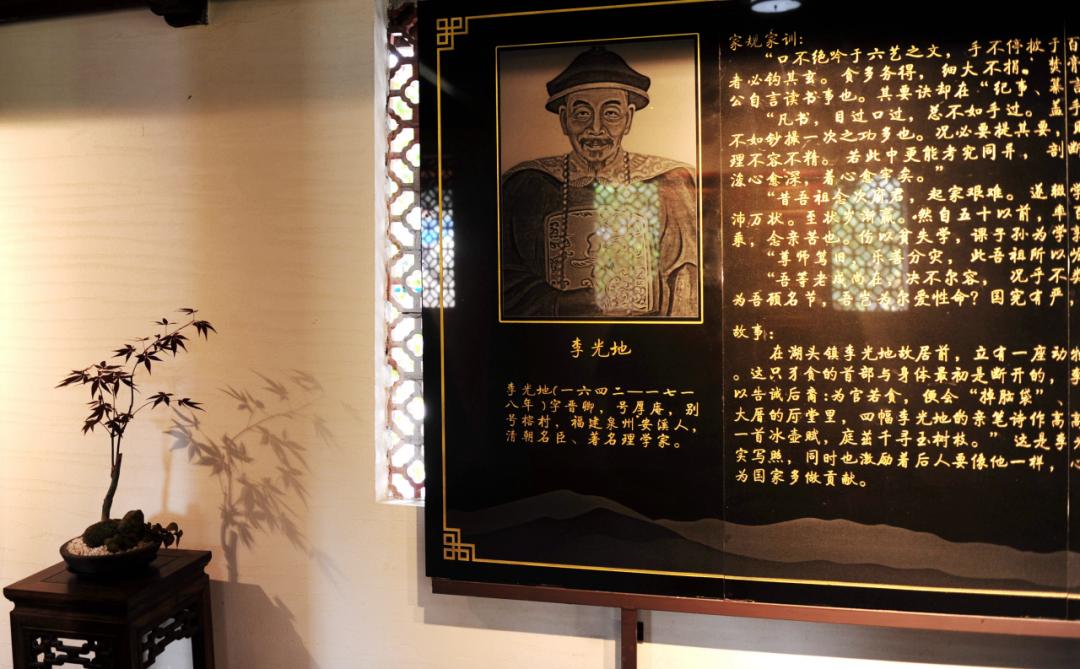 李光地
李光地(一六四二——一七一
八年)字晋卿,号厚庵,别
号榕村,福建泉州安溪人,
清朝名臣、著名理学家。
家规家训:
“口不绝吟于六艺之文,手不停披于百
者必钩其玄。食多务得,细大不捐。焚膏
公自言读书事也。其要诀却在“纪事、纂言
“凡书,目过口过,总不如手过。盖手
不如钞撮一次之功多也。况必要提其要,则
理不容不精。若此中更能考究同异,剖断
浚心愈深,着心愈牢矣。”
“昔吾祖念次府君,起家艰难。遂辍学
沛万状。至状岁渐赢。然自五十以前,
乘,念亲苦也。伤以贫失学,课子孙为学
“尊师笃旧,乐善分灾,此吾祖所以
“吾等老成尚在,决不尔容,况乎不
为吾顾名节,吾岂为尔爱性命?国宪有严,
故事:
在湖头镇李光地故居前,立有一座动物
。这只豸食的首部与身体最初是断开的,李
以告诫后裔:为官若食,便会“掉脑袋”、
大厝的厅堂里,四幅李光地的亲笔诗作高高
一首冰壶赋,庭茁千寻玉树枝。”这是李
实写照,同时也激励着后人要像他一样,心
为国家多做贡献。